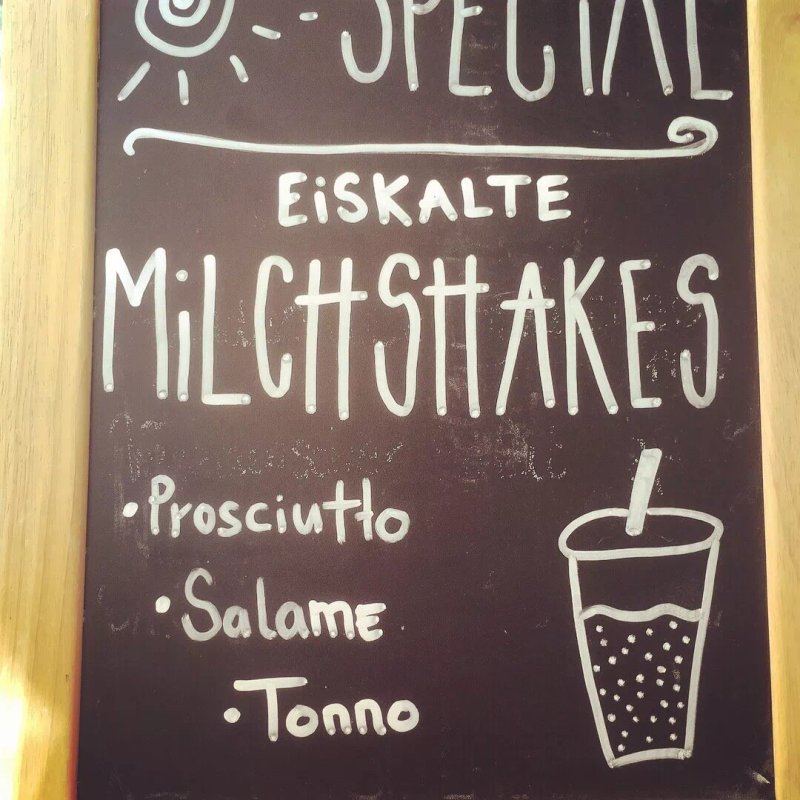 SPECIAL
EiSKALTE
MiLCHSHAKES
• Prosciutto
• Salame
• Tonno